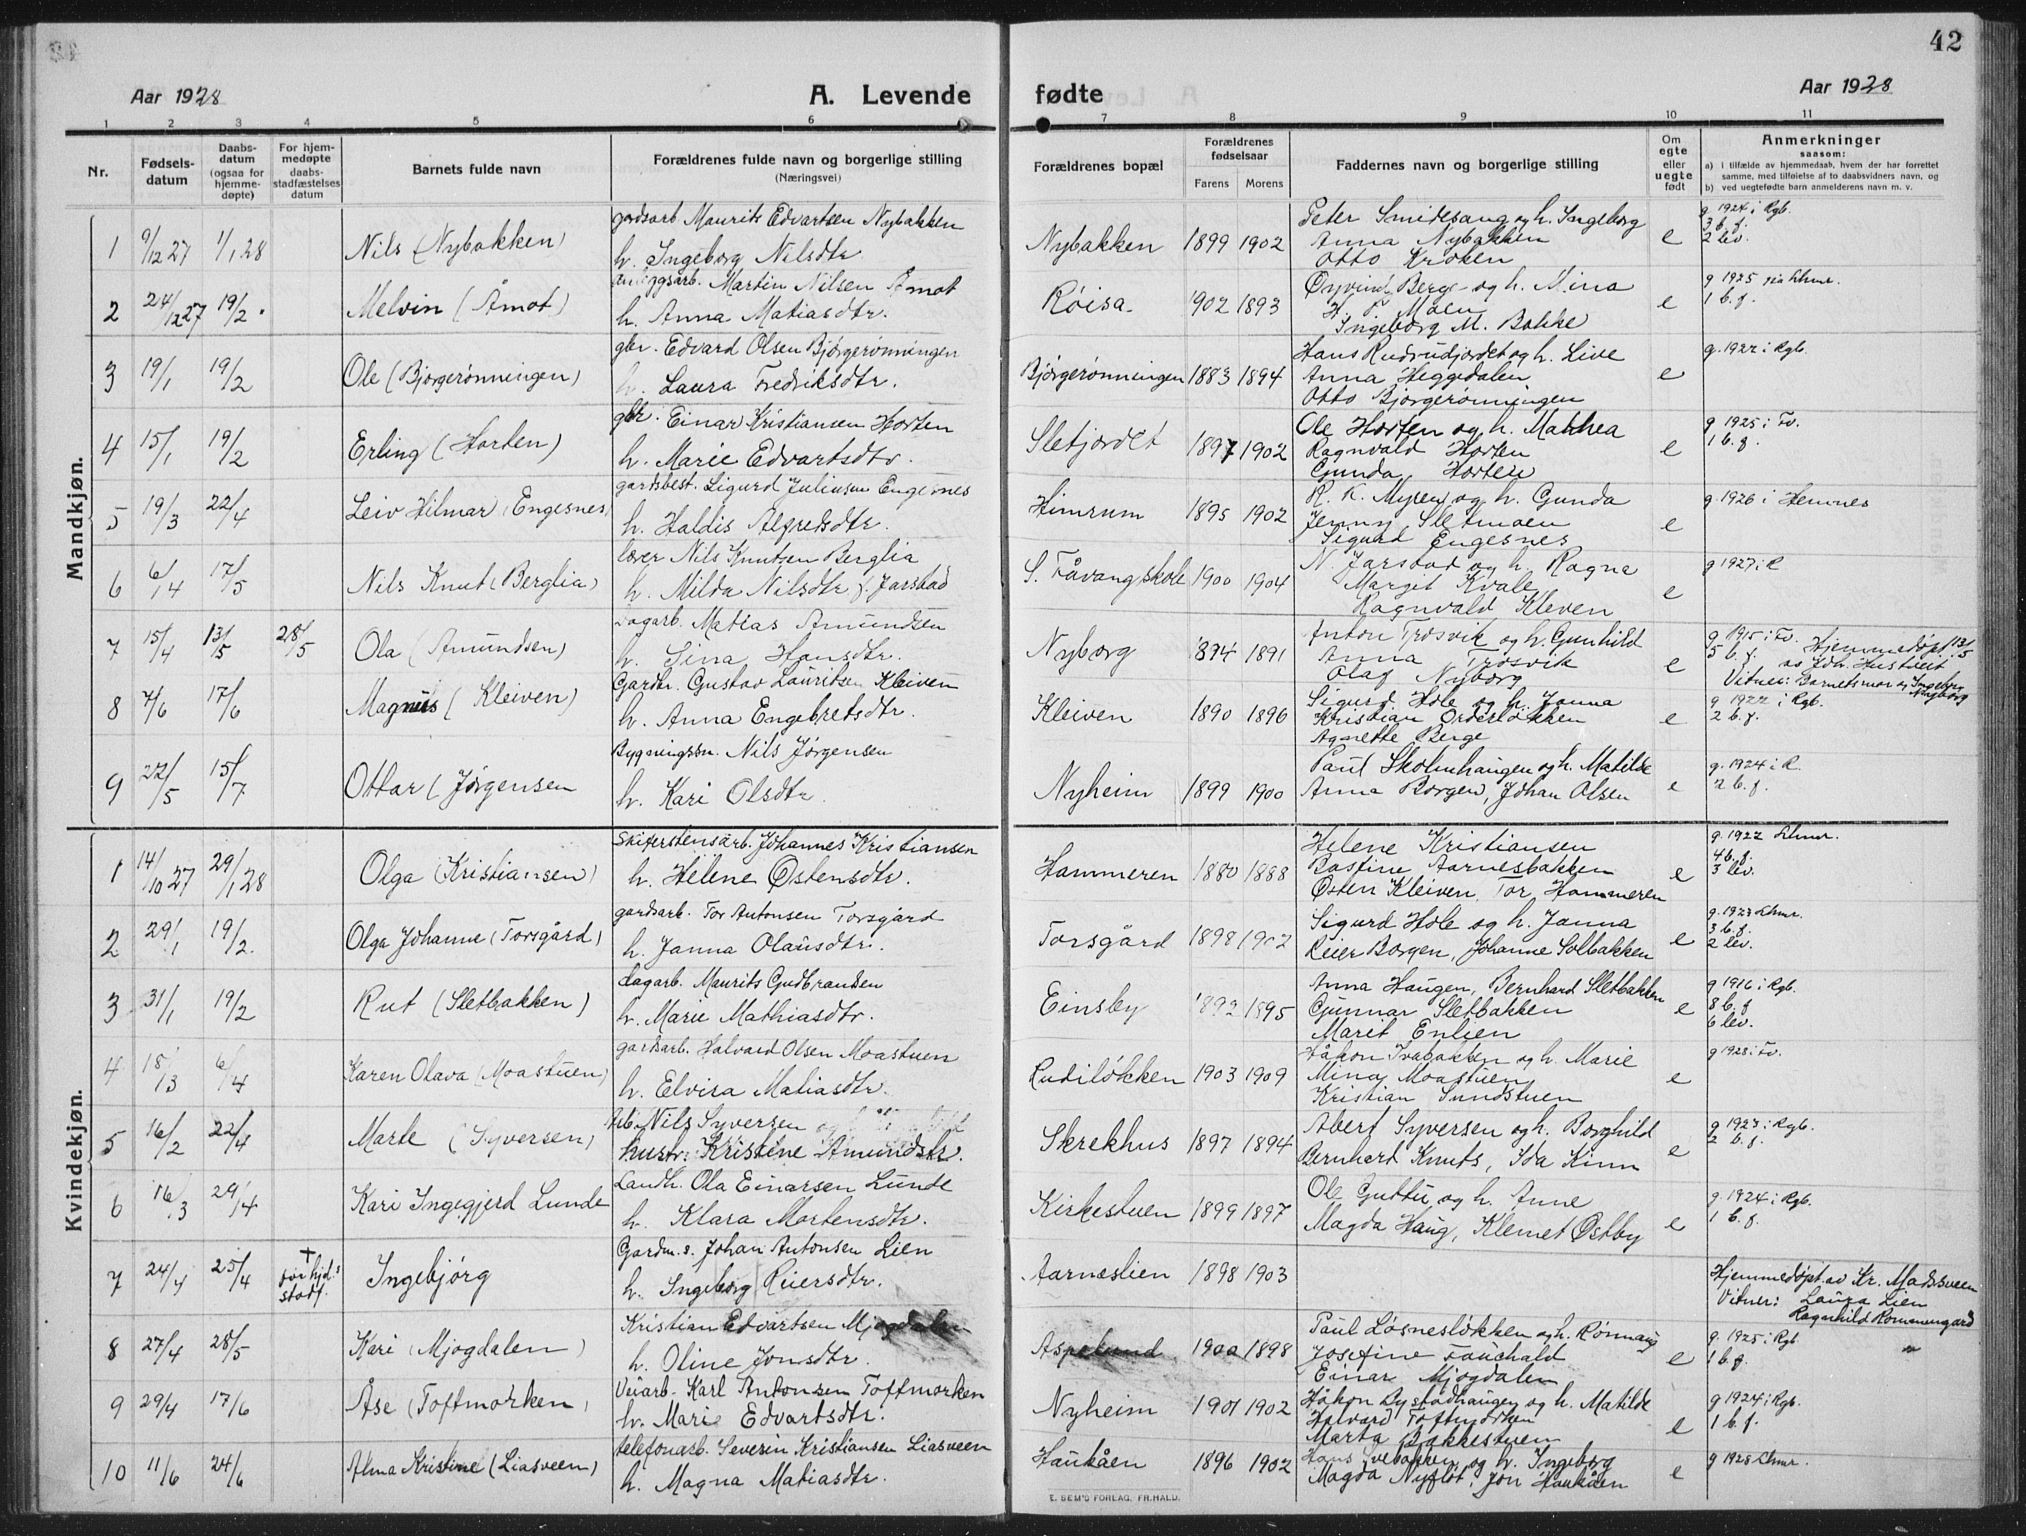 42
Aar 1928
A. Levende
fødte
Aar 1928
1 2 3 4 5 6 7 8 9 10 11
Nr.
Fødsels-datum
Daabs-datum (ogsaa for hjemme-døpte)
For hjem-medøpte daabs-stadfæstelses datum
Barnets fulde navn
Forældrenes fulde navn og borgerlige stilling
(Næringsvei)
Forældrenes bopæl
Forældrenes fødselsaar
Farens Morens
Faddernes navn og borgerlige stilling
Om egte eller uegte født
Anmerkninger
saasom:
a) i tilfælde av hjemmedaab, hvem der har forrettet samme, med tilføielse af to daabsvidners navn, og
b) ved uegtefødte barn anmelderens navn m. v.
Mandkjøn.
1 9/12 27 1/1 28 Nils (Nybakken)
gardsarb. Maurits Edvartsen Nybakken
h. Ingeborg Nilsdtr.
Nybakken 1899 1902
Peter Smidesang og h. Ingeborg
Anna Nybakken
Otto Kroken
e
g 1924 i Rgb.
3 b. f.
2 lev.
2 24/12 27 19/2. Melvin (Åmot)
anleggsarb. Martin Nilsen Åmot
h. Anna Matiasdtr.
Røisa 1902 1893
Øyvind Berge og h. Mina
Ingeborg M. Bakke
e
g 1925
1 b. f.
3 19/1 19/2 Ole (Bjørgerønningen)
gbr. Edvard Olsen Bjørgerønningen
h. Laura Fredriksdtr.
Bjørgerønningen 1883 1894
Hans Rudrudjordet og h. Live
Anna Heggedalen
Otto Bjørgerønningen
e
g. 1922 i Rgb.
4 15/1 19/2 Erling (Horten)
gbr. Einar Kristiansen Horten
h. Marie Edvartsdtr.
Sletjordet 1897 1902
Ole Horten og h. Mathea
Ragnvald Horten
Gunda Horten
e
g 1925 i Fv.
1 b. f.
5 19/3 22/4 Leiv Hilmar (Engesnes)
gardsbest. Sigurd Juliusen Engesnes
h. Haldis Alfredsdtr.
Himrum 1895 1902
K. K. Myren og h. Gunda
Jenny Sletmoen
Sigurd Engesnes
e
g. 1926 i Hemnes
6 6/4 17/5 Nils Knut (Berglia)
lærer Nils Knutsen Berglia
h. Milda Nilsdtr f. Jarstad
S. Fåvang skole 1900 1904
N. Jarstad og h. Ragna
Margit Kvale
Ragnvald Kleven
e
g 1927 i R
7 15/4 13/5 28/5 Ola (Amundsen)
Dagarb. Matias Amundsen
h. Sina Hansdtr.
Nyborg 1894 1891
Anton Trosvik og h. Gunhild
Anna Trosvik
Olaf Nyborg
e
g 1915 i Fv.
5 b. f.
Hjemmedøpt 13/5
Vitner: Barnets mor og Ingeborg Nyborg
8 4/6 17/6 Magnus (Kleiven)
Gardbr. Gustav Lauritsen Kleiven
h. Anna Engebretsdtr.
Kleiven 1890 1896
Sigurd Hole og h. Janna
Kristian Orderløkken
Agnethe Berge
e
g 1922 i Rgb.
2 b. f.
9 22/5 15/7 Ottar (Jørgensen
Bygningssn. Nils Jørgensen
h. Kari Olsdtr.
Nyheim 1899 1900
Paul Skolmhaugen og h. Matilde
Anna Borgen, Johan Olsen
e
g. 1924 i R.
2 b. f.
Kvindekjøn.
1 14/10 27 29/1 28 Olga (Kristiansen)
Skiferstensarb. Johannes Kristiansen
h. Helene Østensdtr.
Hammeren 1880 1888
Helene Kristiansen
Rastine Aarnesbakken
Østen Kleiven, Tor Hammeren
e
g. 1922 Lhmr.
4 b. f.
3 lev.
2 29/1 19/2. Olga Johanne (Torsgård)
gardsarb. Tor Antonsen Torsgård
h. Janna Olausdtr.
Torsgård 1898 1902
Sigurd Hole og h. Janna
Reier Borgen, Johanne Solbakken
e
g. 1923 Lhmr.
3 b. f.
2 lev.
3 31/1 19/2 Rut (Sletbakken)
dagarb. Maurits Gudbrandsen
h. Marie Mathiasdtr.
Einsby 1892 1895
Anna Haugen, Bernhard Sletbakken
Gunnar Sletbakken
Marit Enlien
e
g 1916 i Rgb.
8 b. f
6 lev.
4 18/3 6/4 Karen Olava (Moastuen)
gardsarb. Halvard Olsen Moastuen
h. Elvira Matiasdtr.
Rudiløkken 1903 1909
Håkon Ivabakken og h. Marie
Mina Moastuen
Kristian Sundstuen
e
g 1928 i Fv.
5 16/2 22/4 Marte (Syversen)
Nils Syversen
hustr. Kristine Amundsdtr.
Skrekhus 1897 1894
Abert Syversen og h. Borghild
Bernhard Knuts, Ida Kinn
e
g 1923 i Rgb.
2 b. f.
6 16/3 29/4 Kari Ingegjerd Lunde
Landh. Ola Einarsen Lunde
h. Klara Mortensdtr.
Kirkestuen 1899 1897
Ole Guttu og h. Anne
Magda Haug, Klemet Østby
e
g. 1924 i Rgb.
1 b. f.
7 24/4 25/4 † før hjd.s stadf. Ingebjørg
Gardm.s. Johan Antonsen Lien
h. Ingeborg Reiersdtr.
Aarneslien 1898 1903
Hjemmedøpt av Kr. Madssveen
Vitner: Laura Lien
Ragnhild Rommengaard
8 27/4 28/5 Kari (Mjogdalen)
Kristian Edvartsen Mjogdalen
h. Oline Jonsdtr.
Aspelund 1900 1898
Paul Løsnesløkken og h. Rønnaug
Josefine Fauchald
Einar Mjogdalen
e
g. 1925 i Rgb.
1 b. f.
9 29/4 17/6 Åse (Toftmorken)
Veiarb. Karl Antonsen Toftmorken
h. Marie Edvartsdtr.
Nyheim 1901 1902
Håkon Bystadhaugen og h. Matilde
Halvard Toftmorken
Marta Bakkestuen
e
g 1924 i Rgb.
1 b. f.
10 11/6 24/6 Alma Kristine (Liasveen)
telefonarb. Severin Kristiansen Liasveen
h. Magna Matiasdtr.
Haukåen 1896 1902
Hans Ivebakken og h. Ingeborg
Magda Nyfløt, Jon Haukåen
e
g 1928 Lhmr.
E. SEM'S FORLAG, FR.HALD.